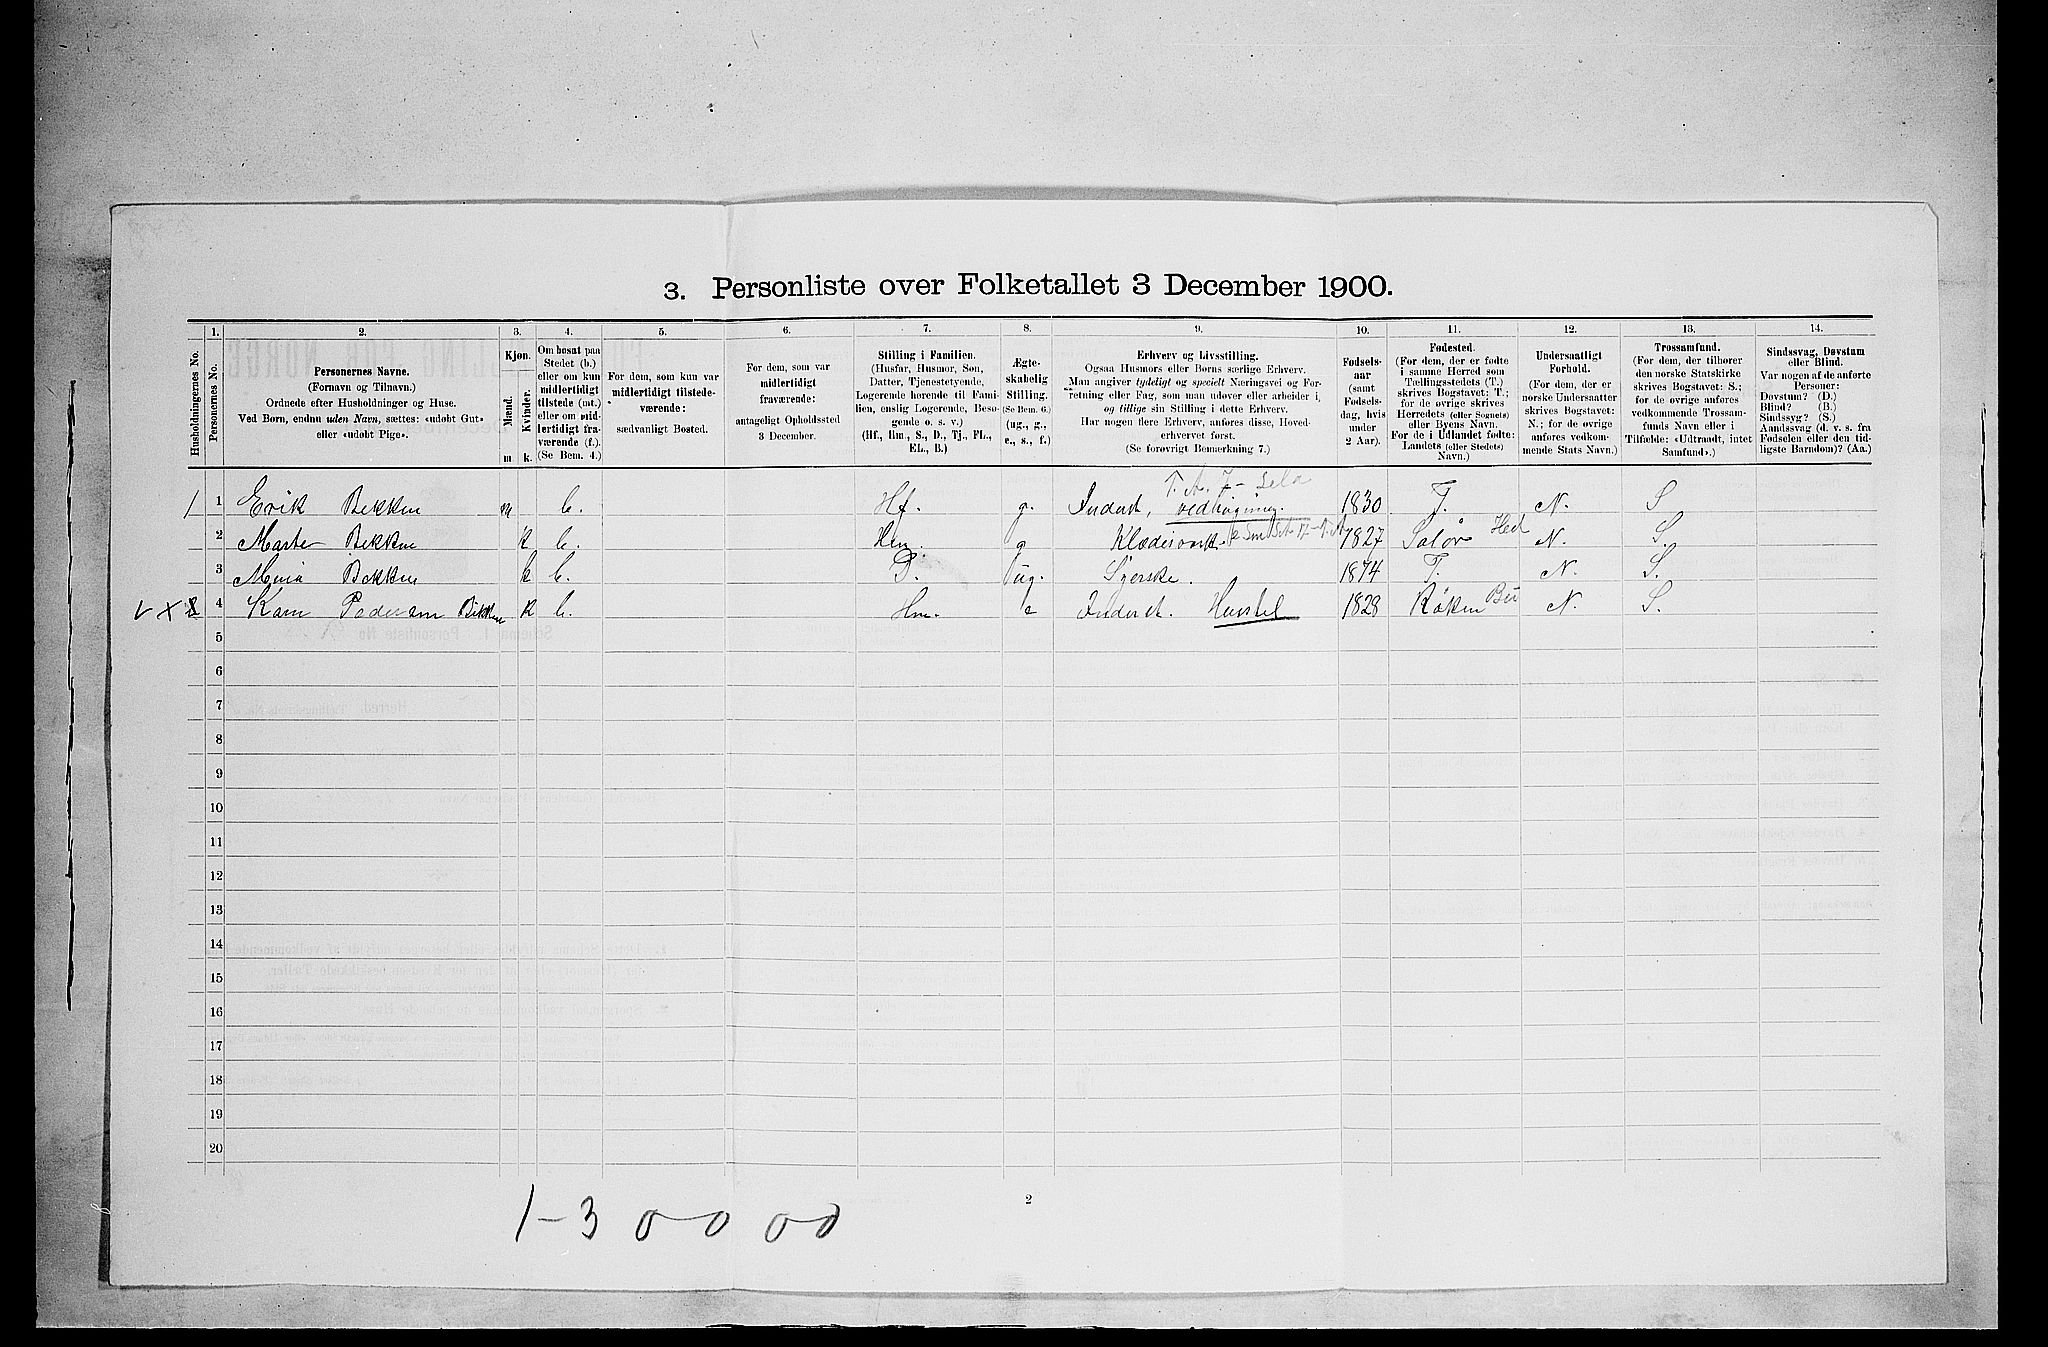 3. Personliste over Folketallet 3 December 1900.
1. 2. 3. 4. 5. 6. 7. 8. 9. 10. 11. 12. 13. 14.
Husholdningernes No.
Personernes No.
Personernes Navne.
(Fornavn og Tilnavn.)
Ordnede efter Husholdninger og Huse.
Ved Børn, endnu uden Navn, sættes: «udøbt Gut»
eller «udøbt Pige».
Kjøn.
Mænd.
Kvinder.
m. k.
Om bosat paa
Stedet (b.)
eller om kun
midlertidigt
tilstede (mt.)
eller om mid-
lertidigt fra-
værende (f.).
(Se Bem. 4.)
For dem, som kun var
midlertidigt tilstede-
værende:
sædvanligt Bosted.
For dem, som var
midlertidigt
fraværende:
antageligt Opholdssted
3 December.
Stilling i Familien.
(Husfar, Husmor, Søn,
Datter, Tjenestetyende,
Logerende hørende til Fami-
lien, enslig Logerende, Besø-
gende o. s. v.)
(Hf., Hm., S., D., Tj., FL.,
EL., B.)
Ægte-
skabelig
Stilling.
(Se Bem. 6.)
(ug., g.,
e., s., f.)
Erhverv og Livsstilling.
Ogsaa Husmors eller Børns særlige Erhverv.
Man angiver tydeligt og specielt Næringsvei og For-
retning eller Fag, som man udøver eller arbeider i,
og tillige sin Stilling i dette Erhverv.
Har nogen flere Erhverv, anføres disse, Hoved-
erhvervet først.
(Se forøvrigt Bemærkning 7.)
Fødsels-
aar
(samt
Fødsels-
dag, hvis
under
2 Aar).
Fødested.
(For dem, der er fødte
i samme Herred som
Tællingsstedets (T.)
skrives Bogstavet: T.;
for de øvrige skrives
Herredets (eller Sognets)
eller Byens Navn.
For de i Udlandet fødte:
Landets (eller Stedets)
Navn.)
Undersaatligt
Forhold.
(For dem, der er
norske Undersaatter
skrives Bogstavet:
N.; for de øvrige
anføres vedkom-
mende Stats Navn.)
Trossamfund.
(For dem, der tilhører
den norske Statskirke
skrives Bogstavet: S.;
for de øvrige anføres
vedkommende Trossam-
funds Navn eller i
Tilfælde: «Udtraadt, intet
Samfund».)
Sindssvag, Døvstum
eller Blind.
Var nogen af de anførte
Personer:
Døvstum? (D.)
Blind? (B.)
Sindssyg? (S.)
Aandssvag (d. v. s. fra
Fødselen eller den tid-
ligste Barndom)? (Aa.)
1 1 Erik Bekken m b. Hf. g. Inderst, vedhugning. 1830 T. N. S
2 Marte Bekken k b. Hm. g 1827 Solør Hed N. S.
3 Mina Bekken k b. D. ug. Syerske. 1874 T. N. S.
4 Karn Pedersen Bekken k b. Hm. e Inderst. 1828 Røken Bu N. S.
5
6
7
8
9
10
11
12
13
14
15
16
17
18
19
20
2
1-3 0-0 00